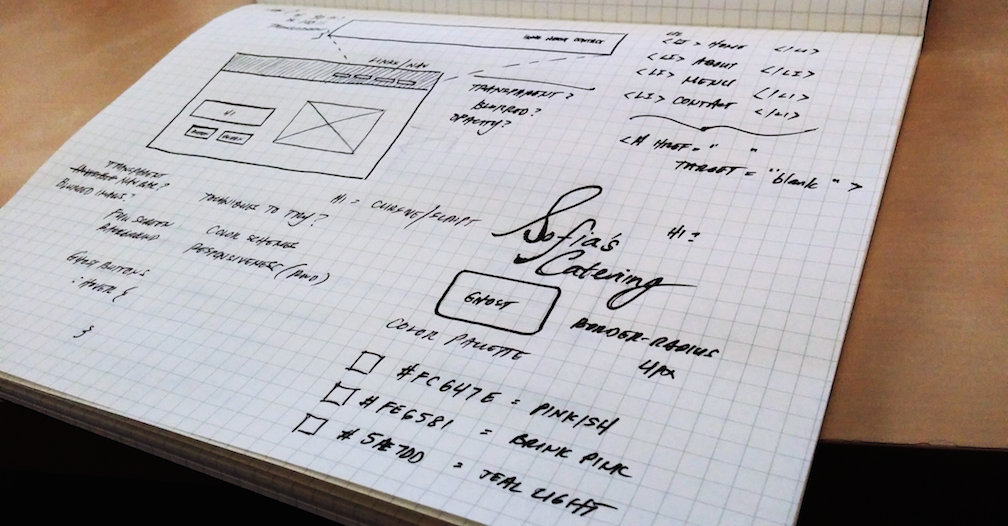 HOME MENU CONTACT
LINKS/NAV
H1
TRANSPARENT?
BLURRED?
OPACITY?
UL
<LI> HOME </LI>
<LI> ABOUT </LI>
<LI> MENU </LI>
<LI> CONTACT </LI>
<A HREF = " "
TARGET = "blank" >
TRANSPARENT
NAV BAR?
BLURRED
FULL SCREEN
BACKGROUND
GHOST BUTTONS
: HOVER {
}
TECHNIQUES TO TRY?
COLOR SCHEME
RESPONSIVENESS
H1 = CURSIVE/SCRIPT
Sofia's
Catering
H1?
GHOST
BORDER-RADIUS
4PX
COLOR PALETTE
#FC647E = PINKISH
#FE6581 = BRINK PINK
#5AE7DD = TEAL LIGHT